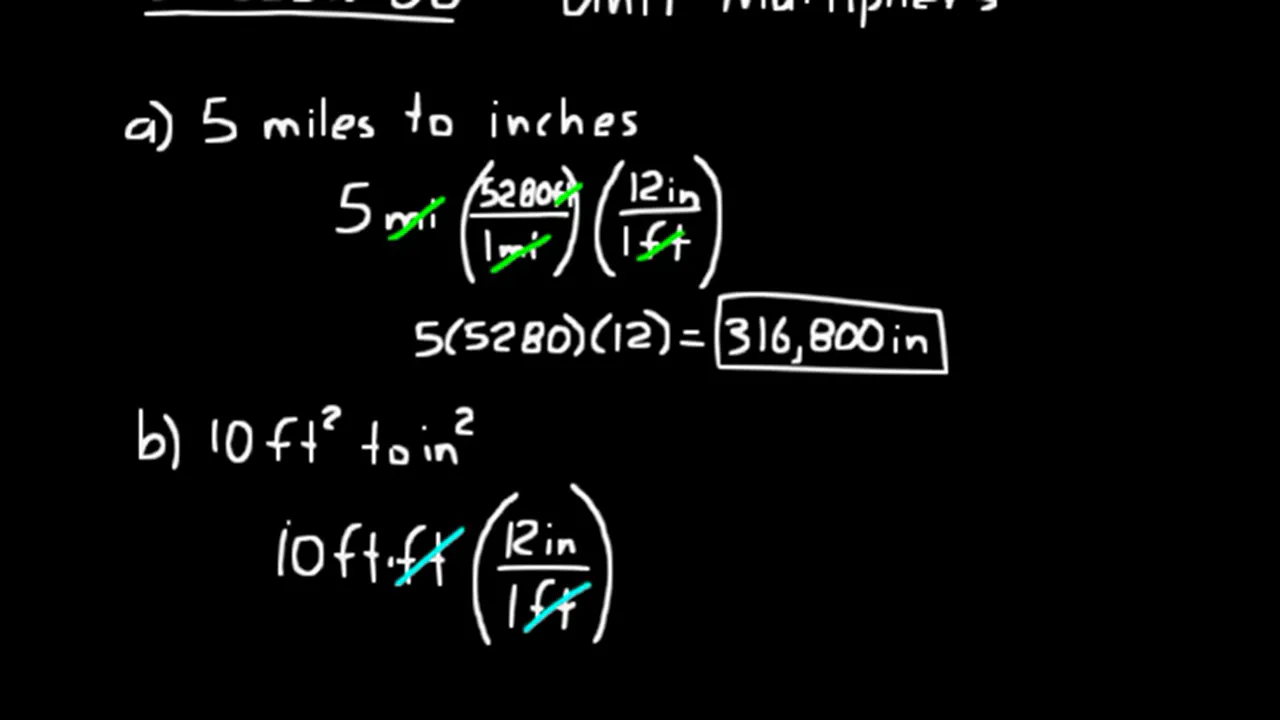 Unit Multipliers
a) 5 miles to inches
5 mi (5280ft/1mi) (12in/1ft)
5(5280)(12) = 316,800 in
b) 10ft² to in²
10ft·ft (12in/1ft)